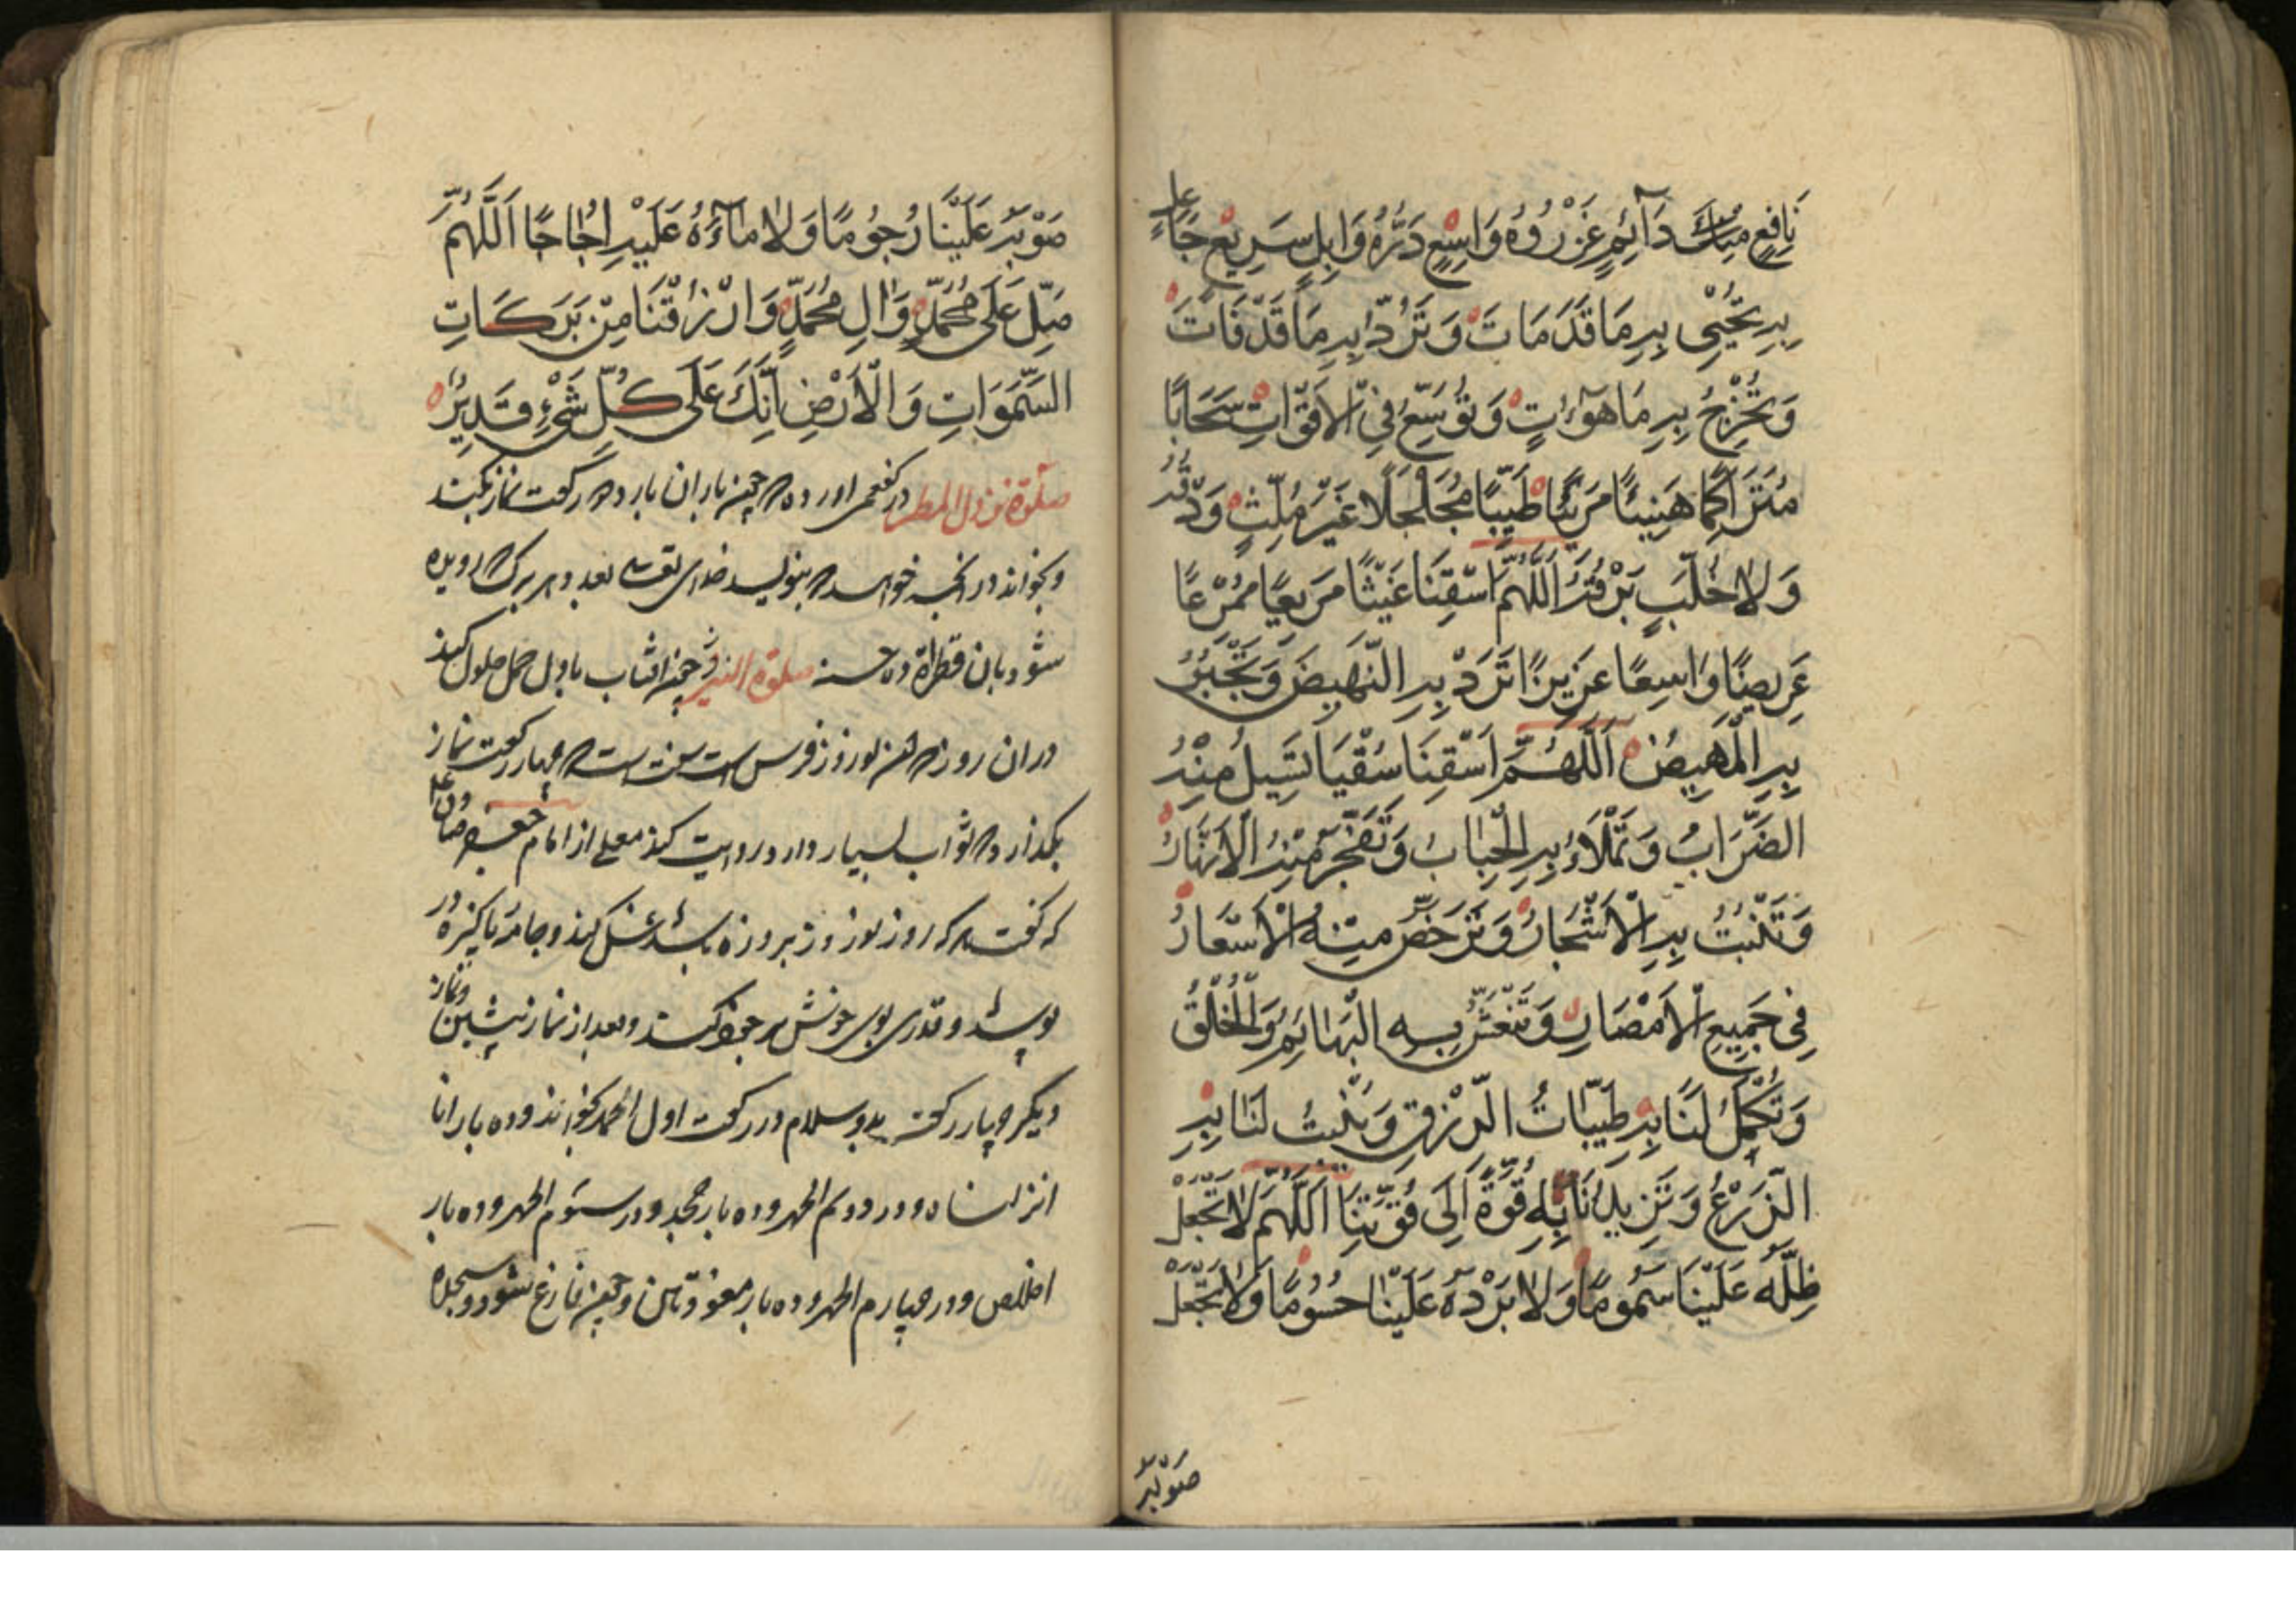 نَافِعٍ مُبَارَكٍ دَآئِمٍ غَزْرُهُ وَاسِعٍ دَرُّهُ وَابِلٍ سَرِيعٍ عَاجِلٍ
بِهِ تُحْيِى بِهِ مَا قَدْ مَاتَ وَتَرُدُّ بِهِ مَا قَدْ فَاتَ
وَتُخْرِجُ بِهِ مَا هُوَ اٰتٍ وَتُوَسِّعُ فِى الْاَقْوَاتِ سَحَابًا
مُتَرَاكِمًا هَنِيئًا مَرِيئًا طَيِّبًا مُجَلْجَلًا غَيْرَ مُلِثٍّ وَدْقُهُ
وَلَا خُلَّبٍ بَرْقُهُ اَللّٰهُمَّ اسْقِنَا غَيْثًا مَرِيعًا مُمْرِعًا
عَرِيضًا وَاسِعًا عَزِيزًا تَرُدُّ بِهِ النَّهِيضَ وَتَجْبُرُ
بِهِ الْمَهِيضَ اَللّٰهُمَّ اسْقِنَا سُقْيَا تَسِيلُ مِنْهُ
الضِّرَابُ وَتَمْلَاءُ بِهِ الْجِبَابُ وَتُفَجِّرُ مِنْهُ الْاَنْهَارُ
وَتُنْبِتُ بِهِ الْاَشْجَارُ وَتُرَخِّصُ مِنْهُ الْاَسْعَارُ
فِى جَمِيعِ الْاَمْصَارِ وَتَنْعَشُ بِهِ الْبَهَائِمُ وَالْخَلْقُ
وَتُكْمِلُ لَنَا بِهِ طَيِّبَاتُ الرِّزْقِ وَتُنْبِتُ لَنَا بِهِ
الزَّرْعُ وَتَزِيدُنَا بِهِ قُوَّةً اِلَى قُوَّتِنَا اَللّٰهُمَّ لَا تَجْعَلْ
ظِلَّهُ عَلَيْنَا سَمُومًا وَلَا بَرْدَهُ عَلَيْنَا حُسُومًا وَلَا تَجْعَلْ
صَوْبَهُ
صَوْبَهُ عَلَيْنَا رُجُومًا وَلَا مَآءَهُ عَلَيْنَا اُجَاجًا اَللّٰهُمَّ
صَلِّ عَلَى مُحَمَّدٍ وَاٰلِ مُحَمَّدٍ وَارْزُقْنَا مِنْ بَرَكَاتِ
السَّمٰوَاتِ وَالْاَرْضِ اِنَّكَ عَلَى كُلِّ شَىْءٍ قَدِيرٌ
صلوة نزول المطر در كفعمى اورده كه چون باران بارد دو ركعت نماز بكند
وبخواند در انچه خواهد كه بنويسد خداى تعالى بعدد هر برگ كه روييده
شود بان قطراة ده حسنه صلوة النيروز چون افتاب باول حمل حلول كند
دران روز كه ان نوروز فرس است سنت است كه چهار ركعت نماز
بگذارد كه ثواب بسيار دارد و روايت كند معلى از امام جعفر صادق
كه گفت هر كه روز نوروز بروزه باشد غسل كند وجامه پاكيزه در
پوشد و قدرى بوى خوش بر خود كند وبعد از نماز پيشين ونماز
ديگر چهار ركعت بدو سلام در ركعت اول الحمد بخواند وده بار انا
انزلناه ودر دوم الحمد وده بار جحد ودر سوم الحمد وده بار
اخلاص ودر چهارم الحمد وده بار معوذتين وچون فارغ شود وسجده